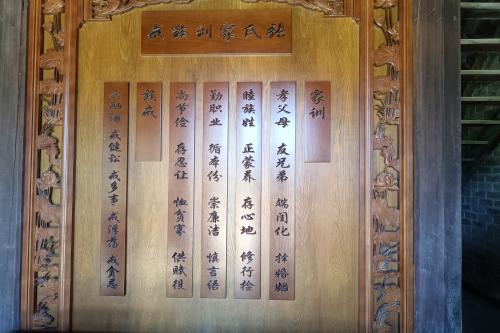 氏家训族戒
家训
孝父母 友兄弟 端闺化 择婚姻
睦族姓 正蒙养 存心地 修行检
勤职业 循本份 崇廉洁 慎言语
尚节俭 存忍让 恤贫寡 供赋役
族戒
戒酗酒 戒健讼 戒多事 戒浮荡 戒贪忌